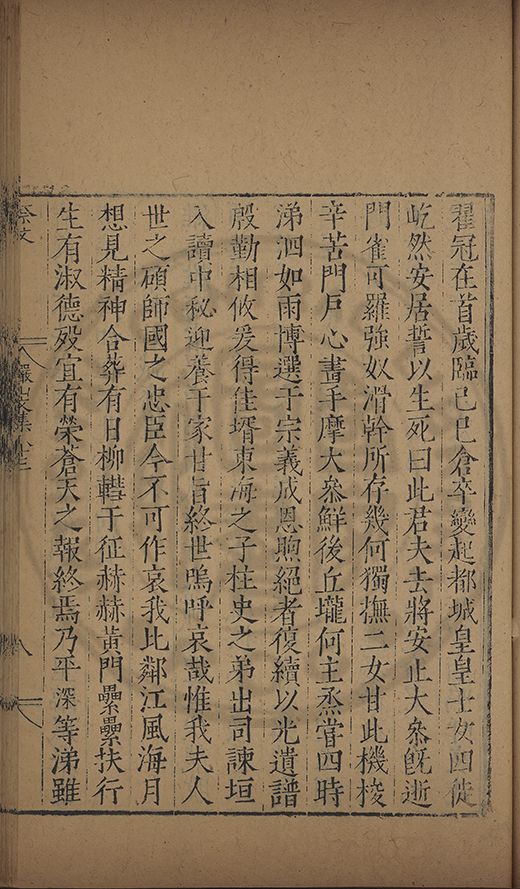 翟冠在首歲臨己巳倉卒變起都城皇皇士女四徙
屹然安居誓以生死曰此君夫去將安止大叅旣逝
門雀可羅強奴滑幹所存幾何獨撫二女甘此機梭
辛苦門戶心畫手摩大叅鮮後丘壠何主烝嘗四時
涕泗如雨博選于宗義成恩煦絕者復續以光遺譜
殷勤相攸爰得佳壻東海之子柱史之弟出司諫垣
入讀中秘迎養于家甘旨終世嗚呼哀哉惟我夫人
世之碩師國之忠臣今不可作哀我此鄰江風海月
想見精神合葬有日柳轊于征赫赫黃門纍纍扶行
生有淑德歿宜有榮蒼天之報終焉乃平深等涕雖
祭文
八